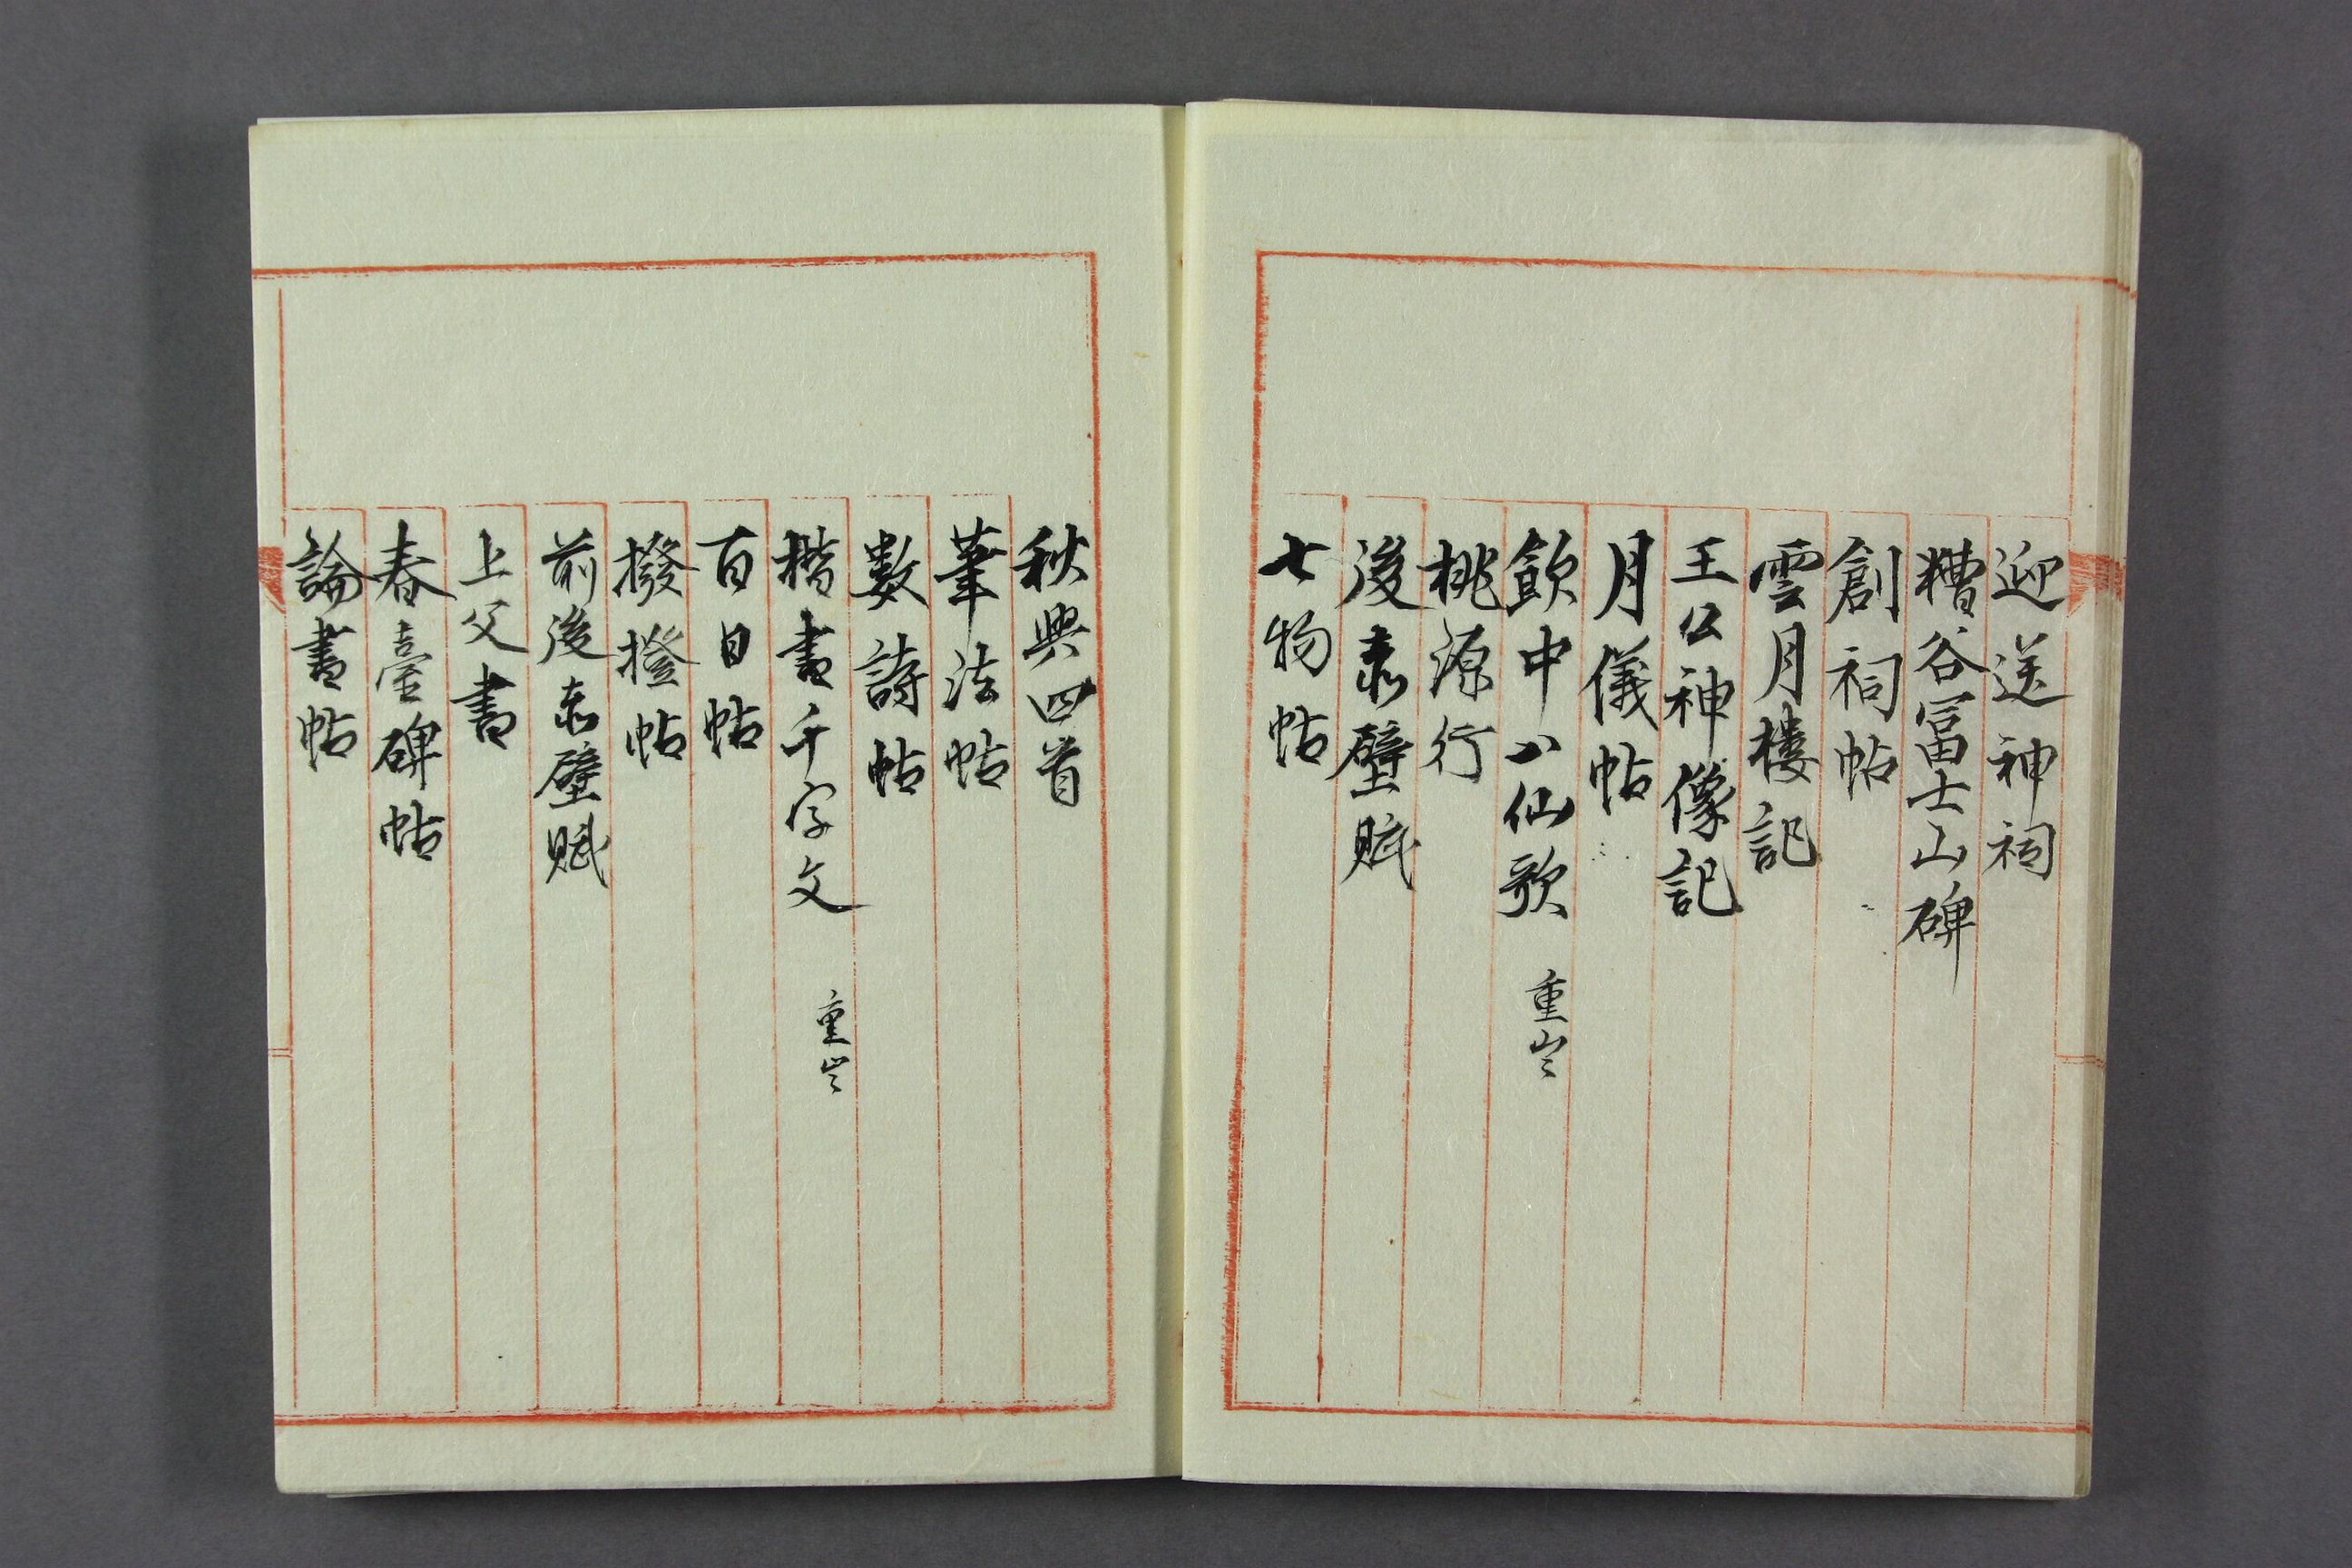 迎送神祠
糟谷冨士山碑
創祠帖
雲月楼記
王公神像記
月儀帖
飲中八仙歌 重出
桃源行
後赤壁賦
七物帖
秋興四首
筆法帖
数詩帖
楷書千字文 重出
百日帖
撥撜帖
前後赤壁賦
上父書
春臺碑帖
論書帖